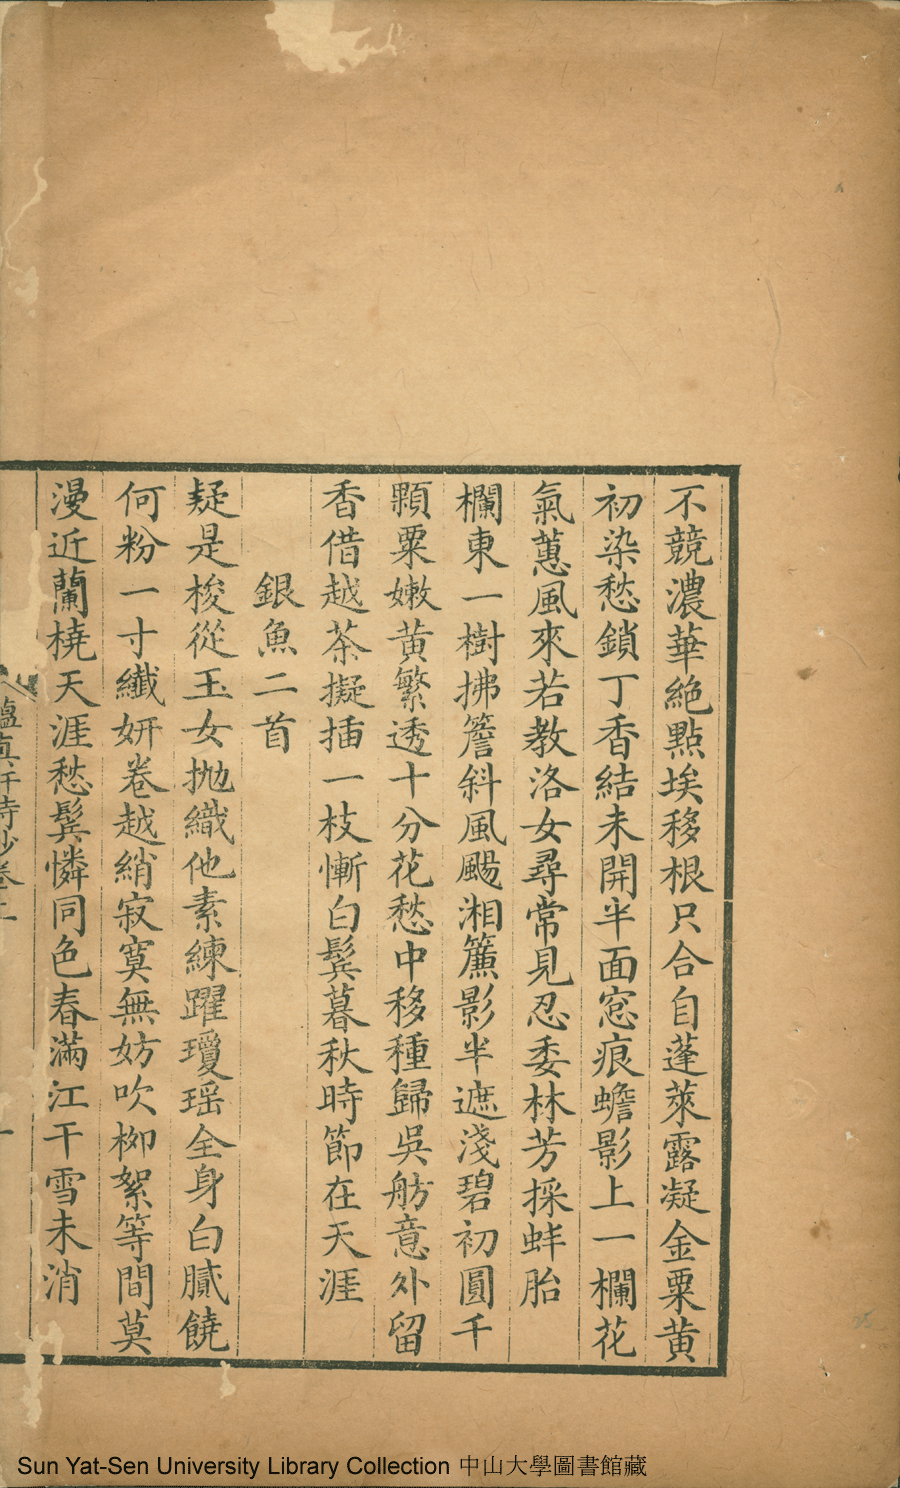 不競濃華絶點埃移根只合自蓬萊露凝金粟黄
初染愁鎖丁香結未開半面窓痕蟾影上一欄花
氣蕙風來若教洛女尋常見忍委林芳採蚌胎
欄東一樹拂簷斜風颺湘簾影半遮淺碧初圓千
顆粟嫩黄繁透十分花愁中移種歸吳舫意外留
香借越茶擬插一枝慚白鬂暮秋時節在天涯
銀魚二首
疑是梭從玉女抛織他素練躍瓊瑶全身白膩饒
何粉一寸纖妍卷越綃寂寞無妨吹柳絮等間莫
漫近蘭橈天涯愁鬂憐同色春滿江干雪未消
詩鈔卷二
Sun Yat-Sen University Library Collection 中山大學圖書館藏